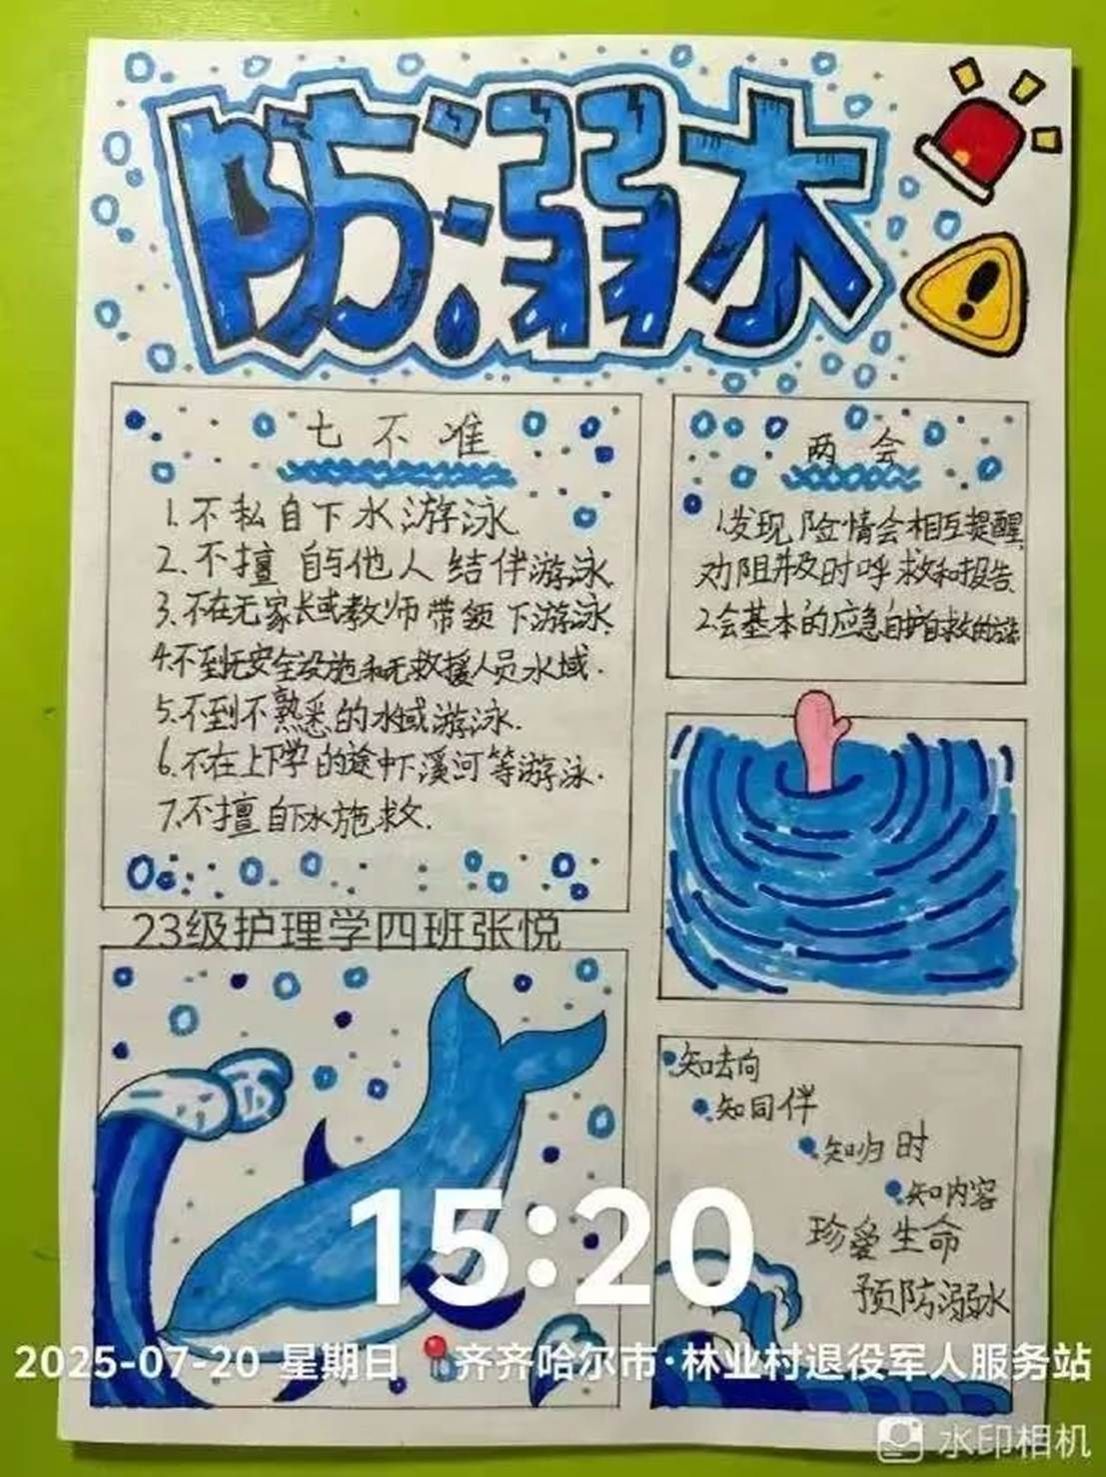 防溺水
七不准
1.不私自下水游泳
2.不擅自与他人结伴游泳
3.不在无家长或教师带领下游泳.
4.不到无安全设施和无救援人员水域.
5.不到不熟悉的水域游泳.
6.不在上下学的途中下溪河等游泳.
7.不擅自下水施救.
两会
1.发现险情会相互提醒
劝阻并及时呼救和报告.
2.会基本的应急自护自救的方法
23级护理学四班张悦
知去向
知同伴
知归时
知内容
珍爱生命
预防溺水
15:20
2025-07-20 星期日 齐齐哈尔市·林业村退役军人服务站
水印相机